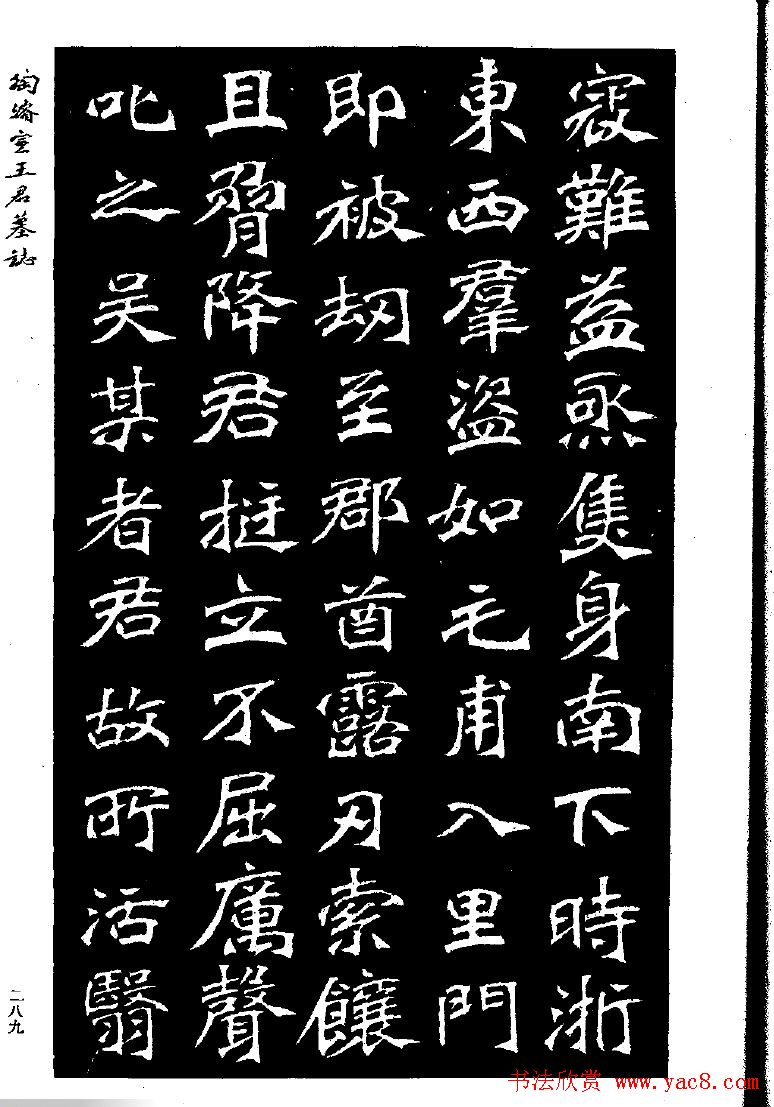 寇難益亟隻身南下時浙
東西羣盜如毛甫入里門
即被刼至郡酋露刃索饟
且脅降君挺立不屈厲聲
叱之吴某者君故所活翳
陶濬宣王君墓誌
二八九
书法欣赏 www.yac8.com